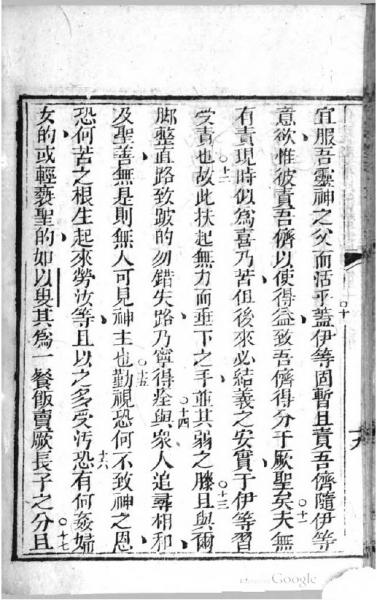 宜服吾靈神之父而活乎蓋伊等固暫且責吾儕隨伊等
意欲惟彼責吾儕以使得益致吾儕得分于厥聖矣夫無
有責現時似爲喜乃苦但後來必結義之安實于伊等習
受責也故此扶起無力而垂下之手並其弱之膝且與爾
腳整直路致跛的勿錯失路乃寧得痊與眾人追尋相和
及聖善無是則無人可見神主也勤視恐何不致神之恩
恐何苦之根生起來勞汝等且以之多受汚恐有何姦婦
女的或輕褻聖的如以㒷其爲一餐飯賣厥長子之分且
十
十一
十二
十三
十四
十五
十六
十七
Google